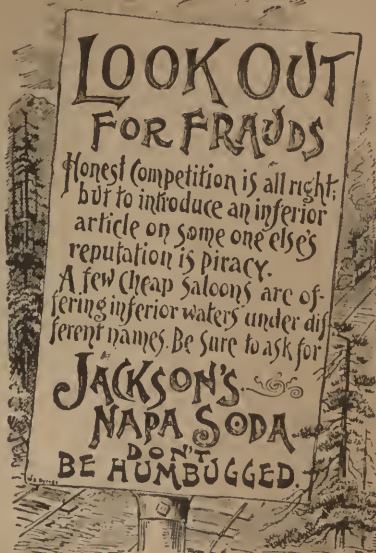 LOOK OUT
FOR FRAUDS
Honest Competition is all right;
but to introduce an inferior
article on some one else's
reputation is piracy.
A few Cheap Saloons are of-
fering inferior waters under dif
ferent names. Be Sure to ask for
JACKSON'S
NAPA SODA
DON'T
BE HUMBUGGED.